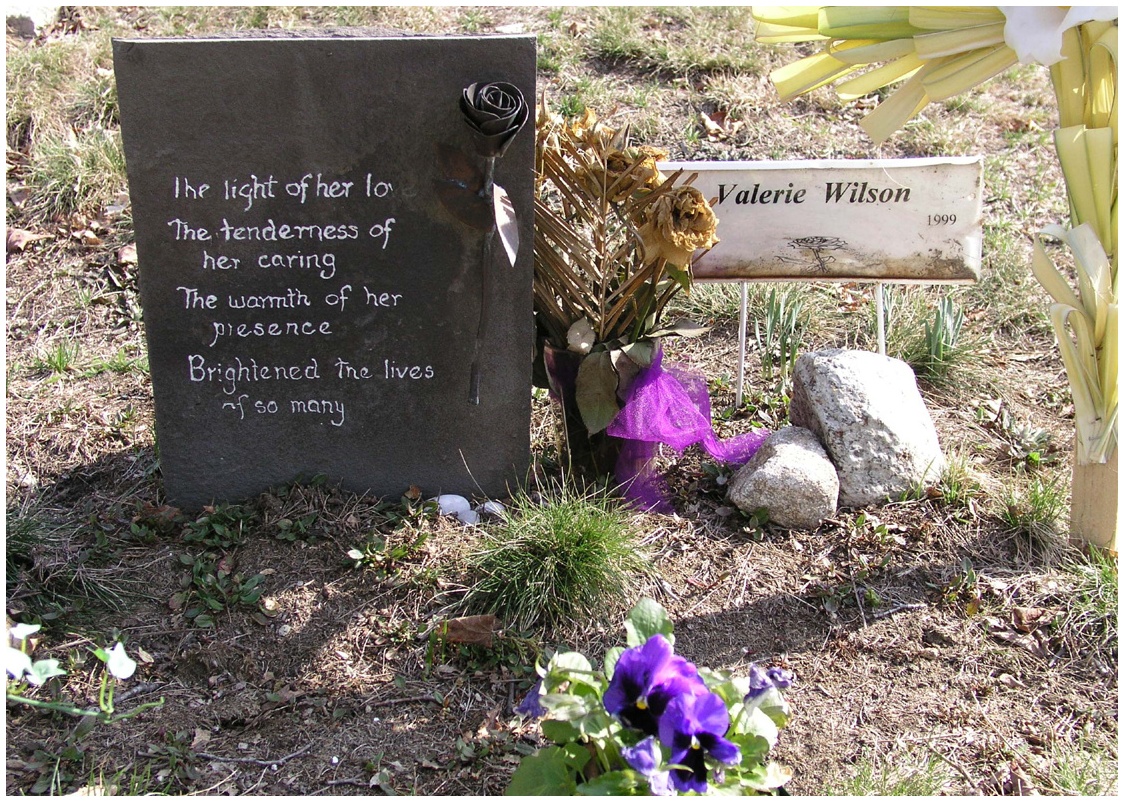 The light of her lo
The tenderness of
her caring
The warmth of her
presence
Brightened the lives
of so many
Valerie Wilson
1999